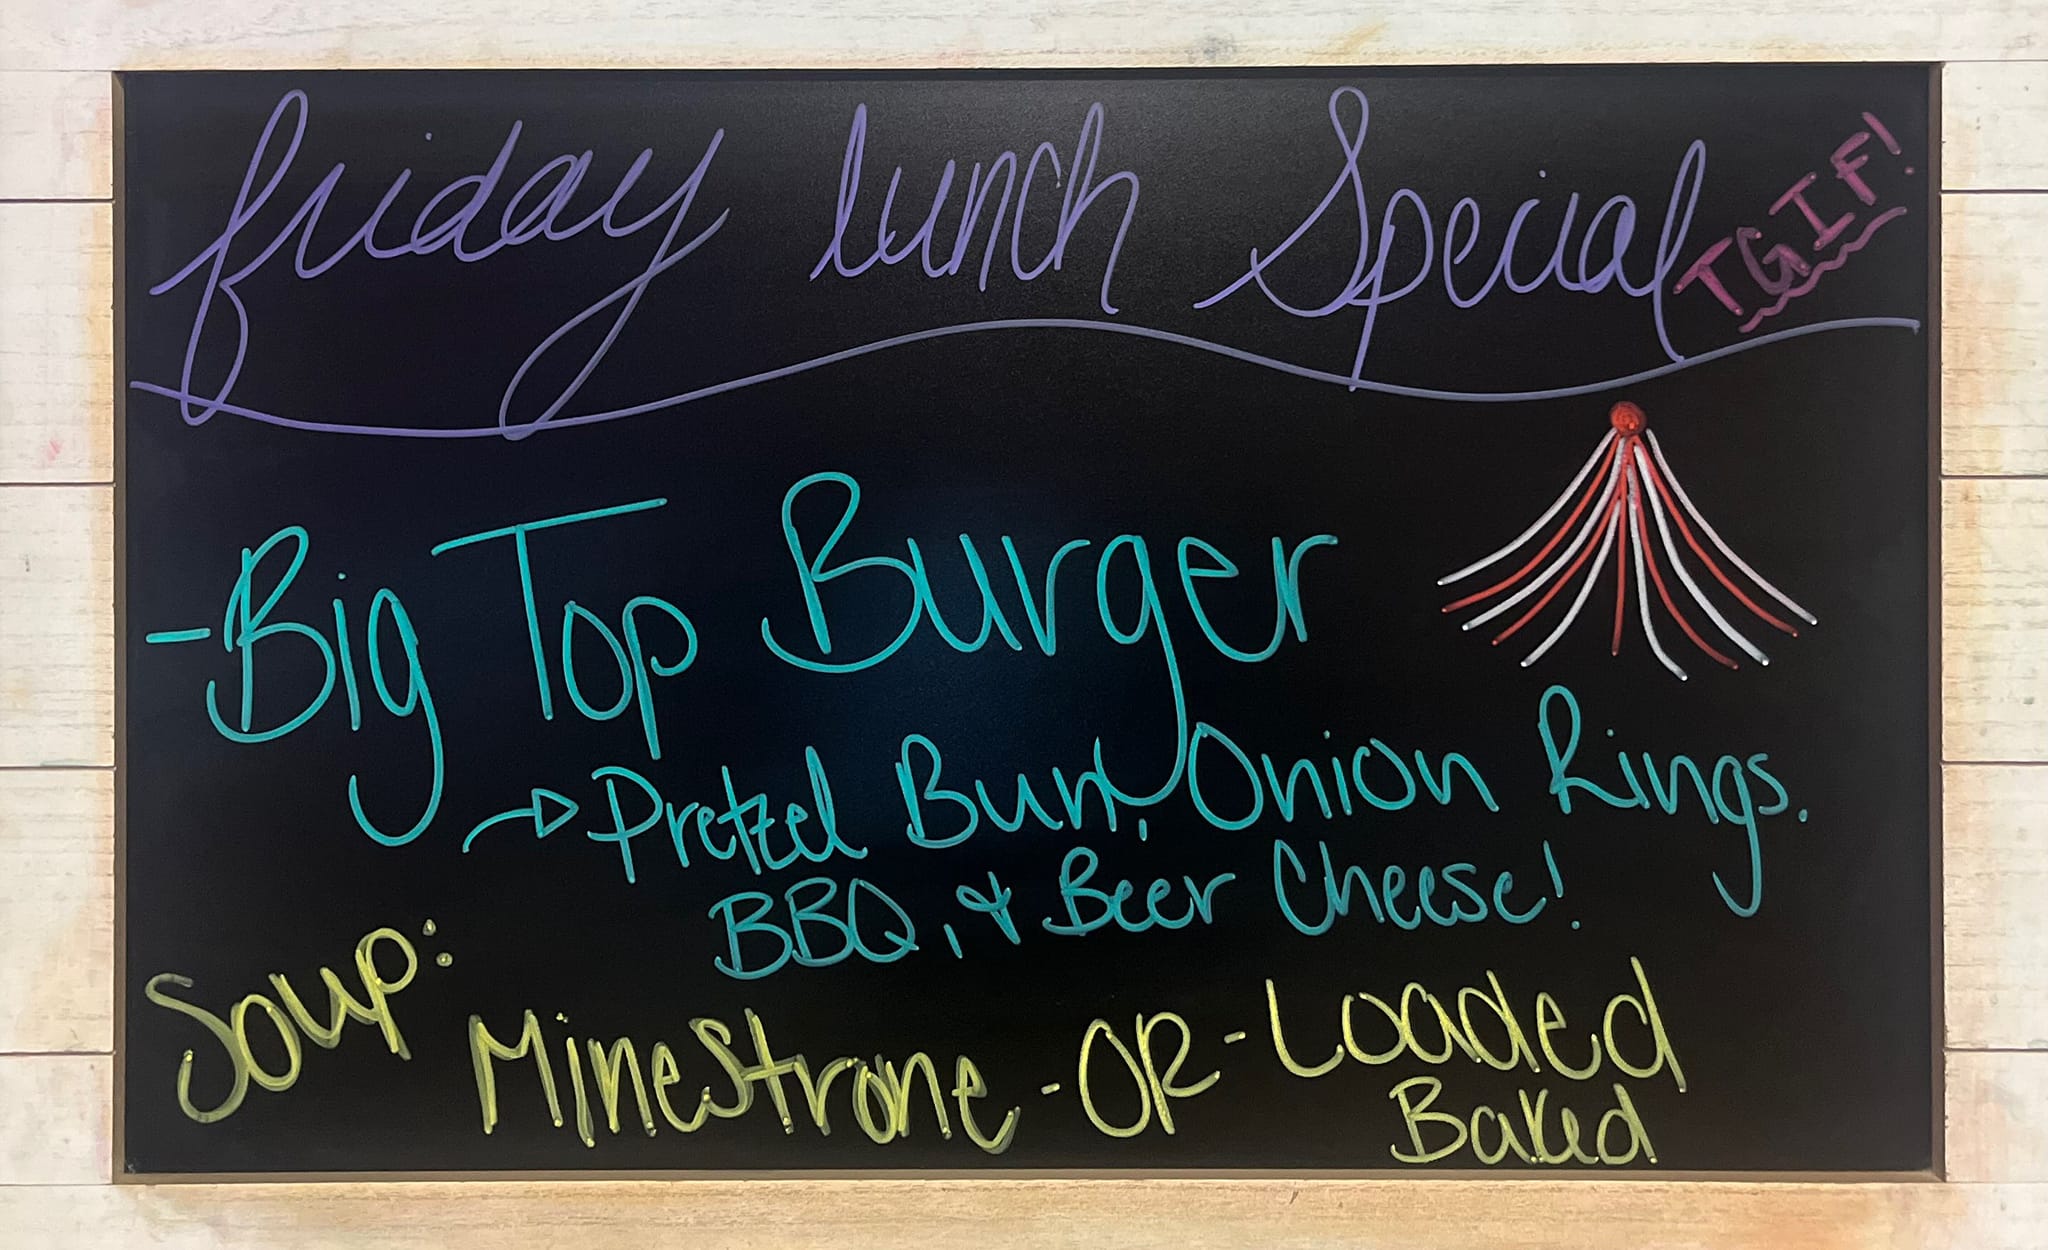 friday lunch Special TGIF!
-Big Top Burger
→Pretzel Bun, Onion Rings.
BBQ, & Beer Cheese!
Soup:
Minestrone -OR- Loaded
Baked